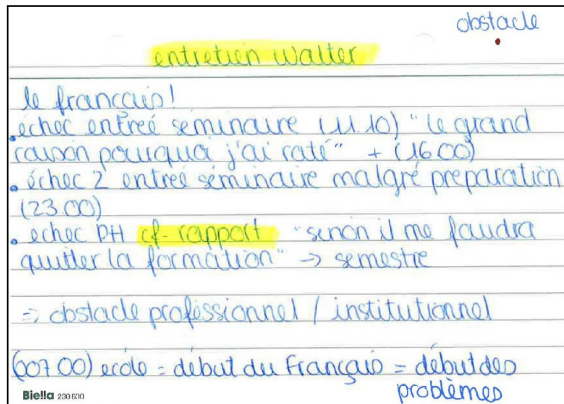 obstacle
entretien Walter
le français!
. échec entreé séminaire (11.10) "le grand
raison pourquoi j'ai raté" + (16.00)
. échec 2 entreé séminaire malgré preparation
(23.00)
. echec PH cf. rapport "sinon il me faudra
quitter la formation" → semestre
⇒ obstacle professionnel / institutionnel
(007.00) ecole = début du Français = début des
problèmes
Biella 230 600